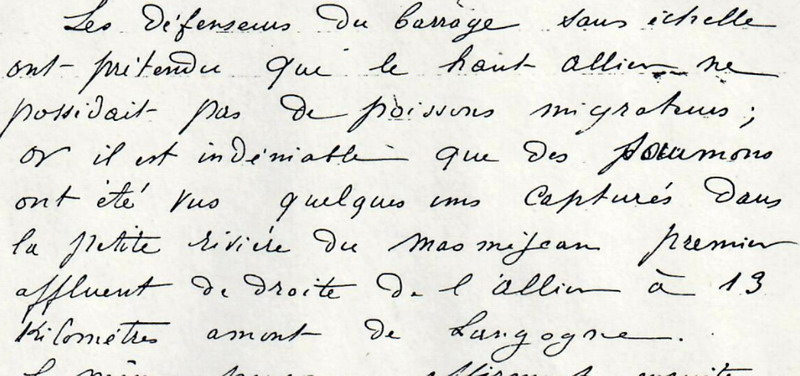 Les défenseurs du barrage sans échelle
ont prétendu que le haut Allier ne
possédait pas de poissons migrateurs ;
or il est indéniable que des saumons
ont été vus quelques uns capturés dans
la petite rivière du Masméjean premier
affluent de droite de l'Allier à 13
Kilomètres amont de Langogne.